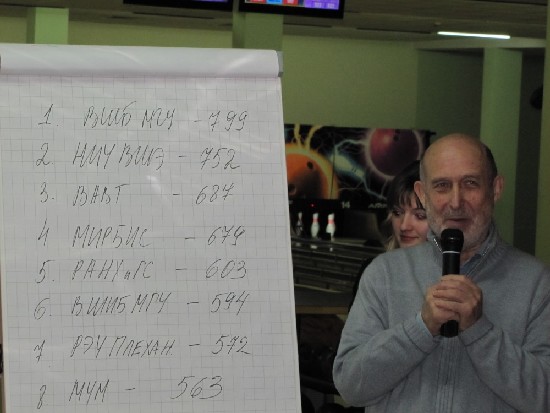 1 ВШБ МГУ - 799
2 НМУ ВШЭ - 752
3. ВАВТ - 687
4 МИРБИС - 679
5. РАНХиГС - 603
6. ВШИБ МГУ - 594
7 РЭУ ПЛЕХАН. - 572
8 МУМ - 563
14